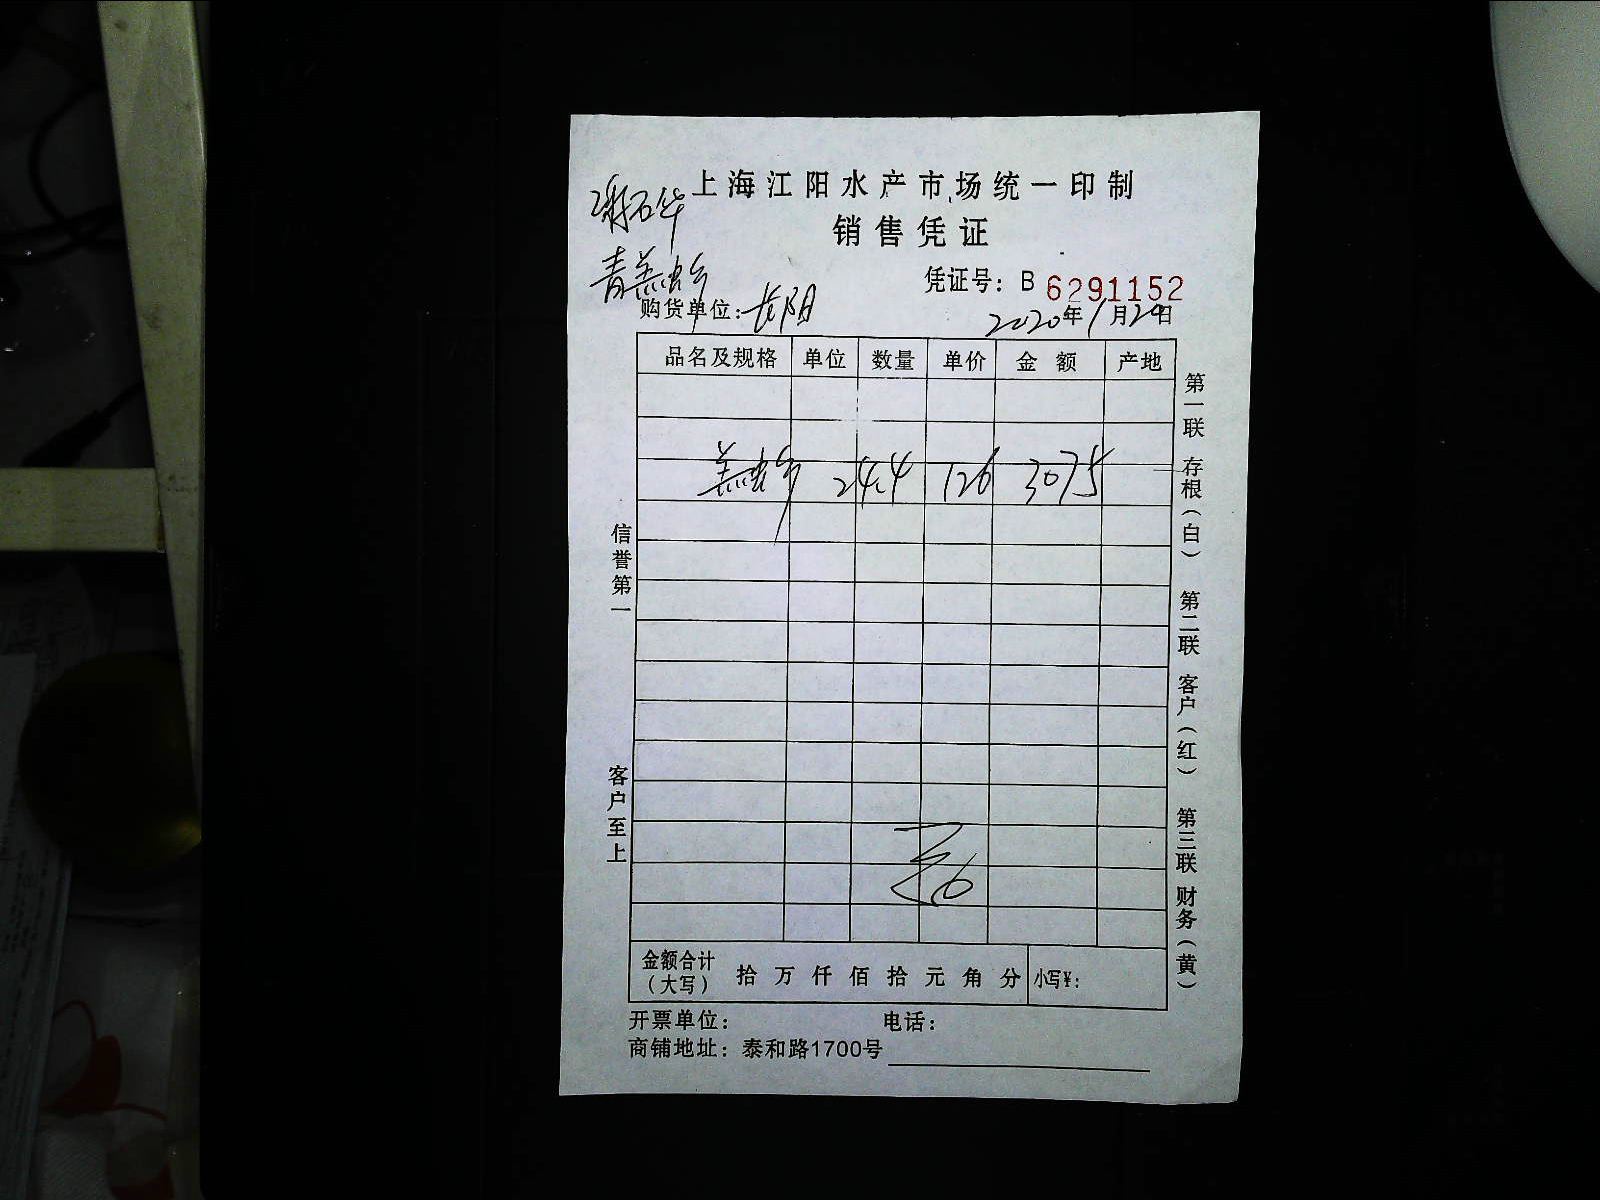 上海江阳水产市场统一印制
销售凭证
凭证号：B 6291152
购货单位：长阳
2020年1月20日
品名及规格 单位 数量 单价 金额 产地
24.4 126 3075
金额合计（大写） 拾万仟佰拾元角分 小写￥：
开票单位： 电话：
商铺地址：泰和路1700号
信誉第一 客户至上
第一联 存根（白） 第二联 客户（红） 第三联 财务（黄）